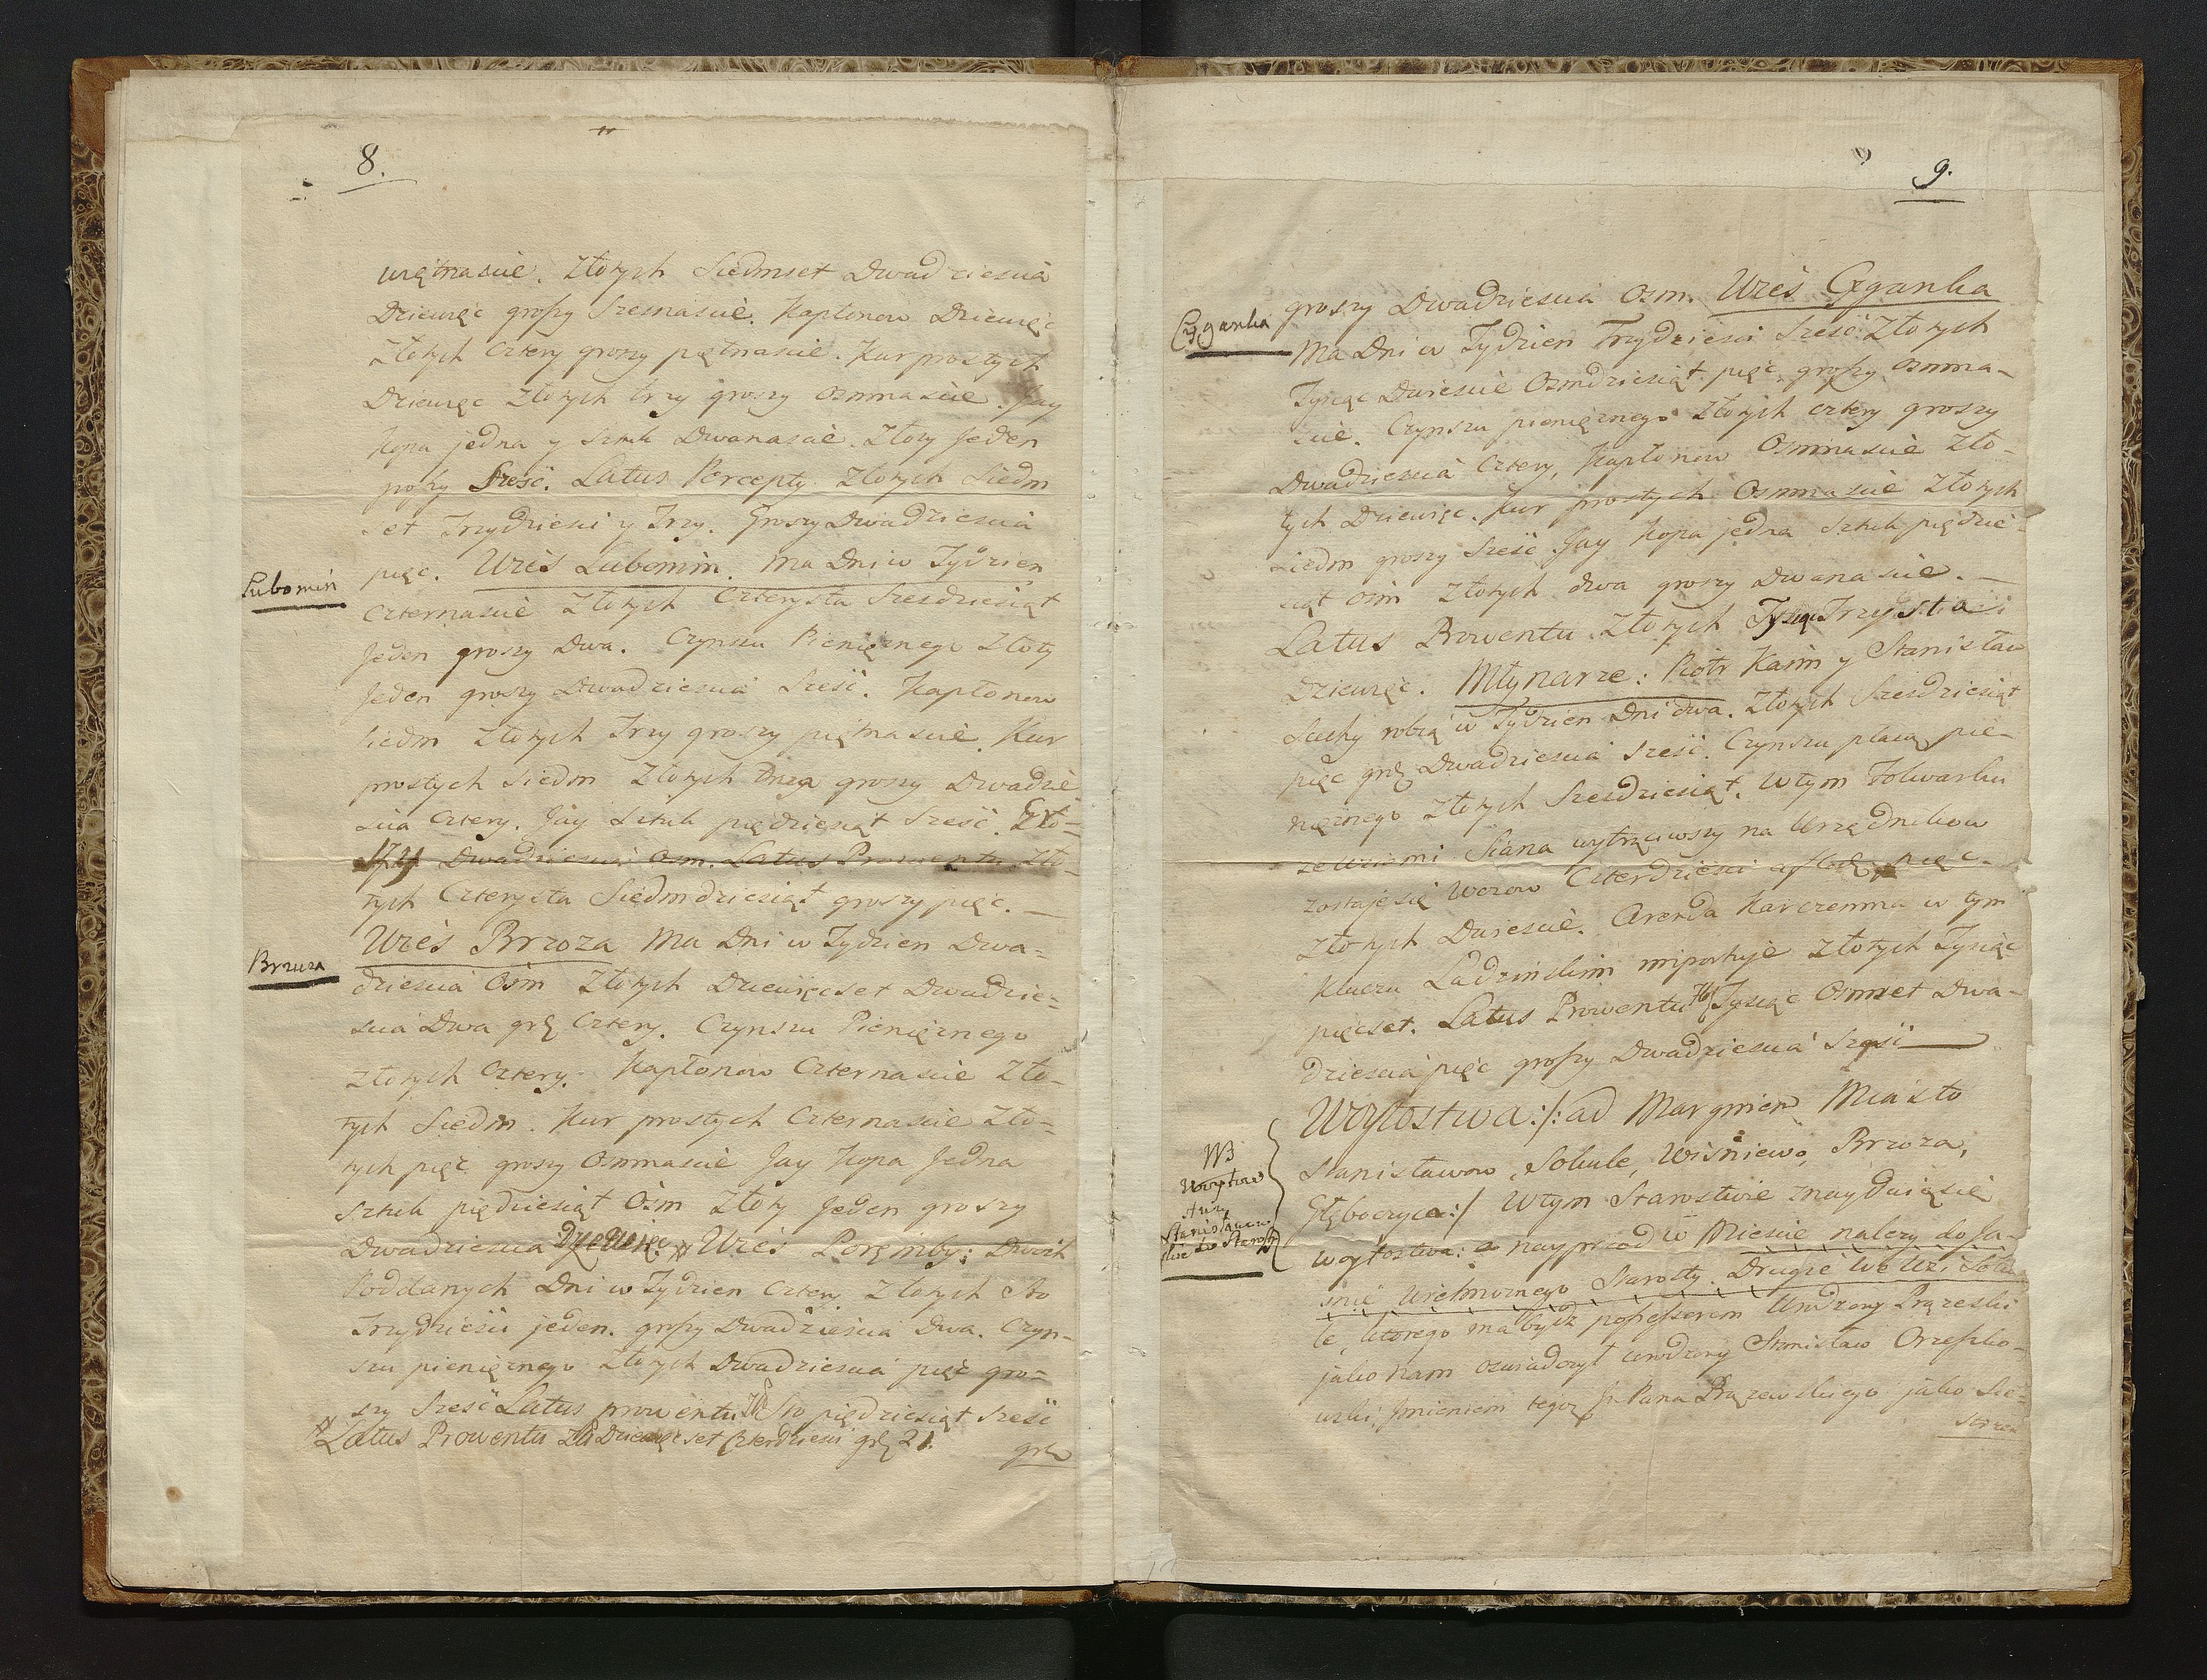 8.
więtnaście. Złotych Siedmset Dwadziescia
Dziewięc groszy Szesnascie. Kapłonow Dziewięc
Złotych Cztery groszy piętnascie. Kur prostych
Dziewięc Złotych trzy groszy Osmnascie. Jay
Kopa jedna y Sztuk Dwanascie. Złoty Jeden
groszy Szesc. Latus Percepty Złotych Siedm
set Trzydziesci y Trzy. Groszy Dwadziescia
pięc. Wies Lubomin. ma Dni w Tydzien
Lubomin
Czternascie Złotych Czterysta Szesdziesiąt
Jeden groszy Dwa. Czynszu Pieniężnego Złoty
Jeden groszy Dwadziescia Szesc. Kapłonow
Siedm Złotych Trzy groszy piętnascie. Kur
prostych Siedm Złotych Dwa groszy Dwadzie
scia Cztery. Jay Sztuk pięcdziesiąt Szesc.
Dwadziescia Osm. Latus Prowentu Zło-
tych Czterysta Siedmdziesiąt groszy pięc.
Wies Brzoza Ma Dni w Tydzien Dwa-
Brzoza
dziescia Osm Złotych Dziewięcset Dwadzie-
scia Dwa grę Cztery. Czynszu Pieniężnego
Złotych Cztery. Kapłonow Czternascie Zło-
tych Siedm. Kur prostych Czternascie Zło-
tych pięc groszy Osmnascie Jay Kopa Jedna
Sztuk pięcdziesiąt Osm Złoty Jeden groszy
Dwadziescia Dziewięc # Wies Porębiby: Dwóch
Poddanych Dni w Tydzien Cztery Złotych Sto
Trzydziesci jeden. groszy Dwadziescia Dwa. Czyn-
szu pieniężnego Złotych Dwadziescia pięc gro-
szy Szesc Latus prowentu Zł Sto pięcdziesiąt Szesc
# Latus Prowentu Zł Dziewięcset Czterdziesci grę 21.
grę
9.
groszy Dwadziescia Osm. Wies Cyganka
Cyganka
Ma Dni w Tydzien Trzydziesci Szesc Złotych
Tysiąc Dwiescie Osmdziesiąt pięc groszy Osmna-
scie. Czynszu pieniężnego Złotych cztery groszy
Dwadziescia Cztery, Kapłonow Osmnascie Zło-
tych Dziewięc. Kur prostych Osmnascie Złotych
Siedm groszy Szesc Jay Kopa jedna Sztuk pięcdzie-
siąt osm Złotych dwa groszy Dwanascie. —
Latus Prowentu Złotych Tysiąc Trzysta
Dziewięc. Młynarze: Piotr Kaim y Stanisław
Suchy robią w Tydzien Dni dwa. Złotych Szesdziesiąt
pięc grę Dwadziescia Szesc. Czynszu płacą pie-
niężnego Złotych Szesdziesiąt. W tym Folwarku
ze wziemi Siana wytrąciwszy na Urzędnikow
zostaje się Wozow Czterdziesci pięc-
Złotych Dwiescie. Arenda Karczemna w tym
Kluczu Ladzińskim importuje Złotych Tysiąc
pięcset. Latus Prowentu Zł Tysiąc Osmset Dwa-
dziescia pięc groszy Dwadziescia Szesc
Woytostwa:/: ad Marginem Miasto
Stanisławow, Sokule, Wiśniewo, Brzoza,
Głęboczyca:/ W tym Starostwie znayduią się
NB
Woytow
Stanisławow
skie do Starosty
woytostwa: a nayprzod w Miescie nalezy do Ja-
snie Wielmoznego Starosty. Drugie We Wsi Soku
le, ktorego ma bydz possessorem Urodzony Prazeski
jako nam oswiadczył urodzony Stanisław Orzeszko-
wski, Jmieniem tegoz Jr Pana Prazewskiego jako Sie-